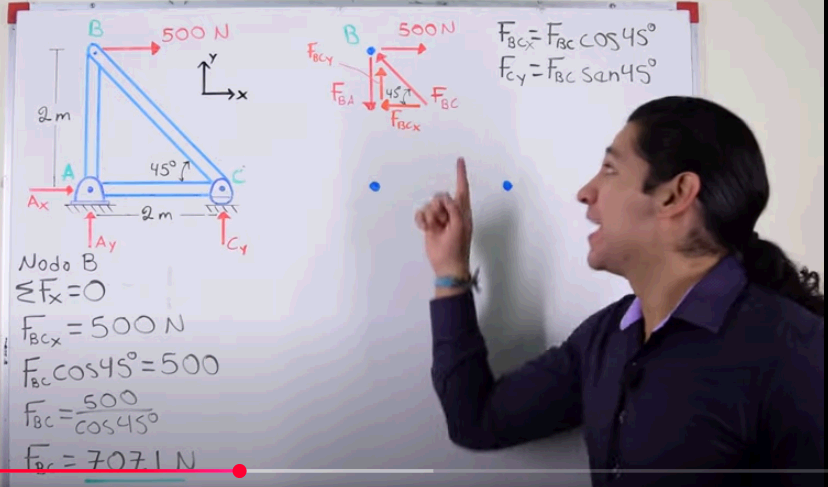 B
500 N
y
x
2m
45°
A
C
Ax
2m
Ay
Cy
B
500N
FBCy
FBA
45°
FBC
FBCx
FBCx=FBC cos45°
FCy=FBC san45°
Nodo B
ΣFx=0
FBCx=500N
FBC cos45°=500
FBC=500/cos45°
FBC=707.1 N